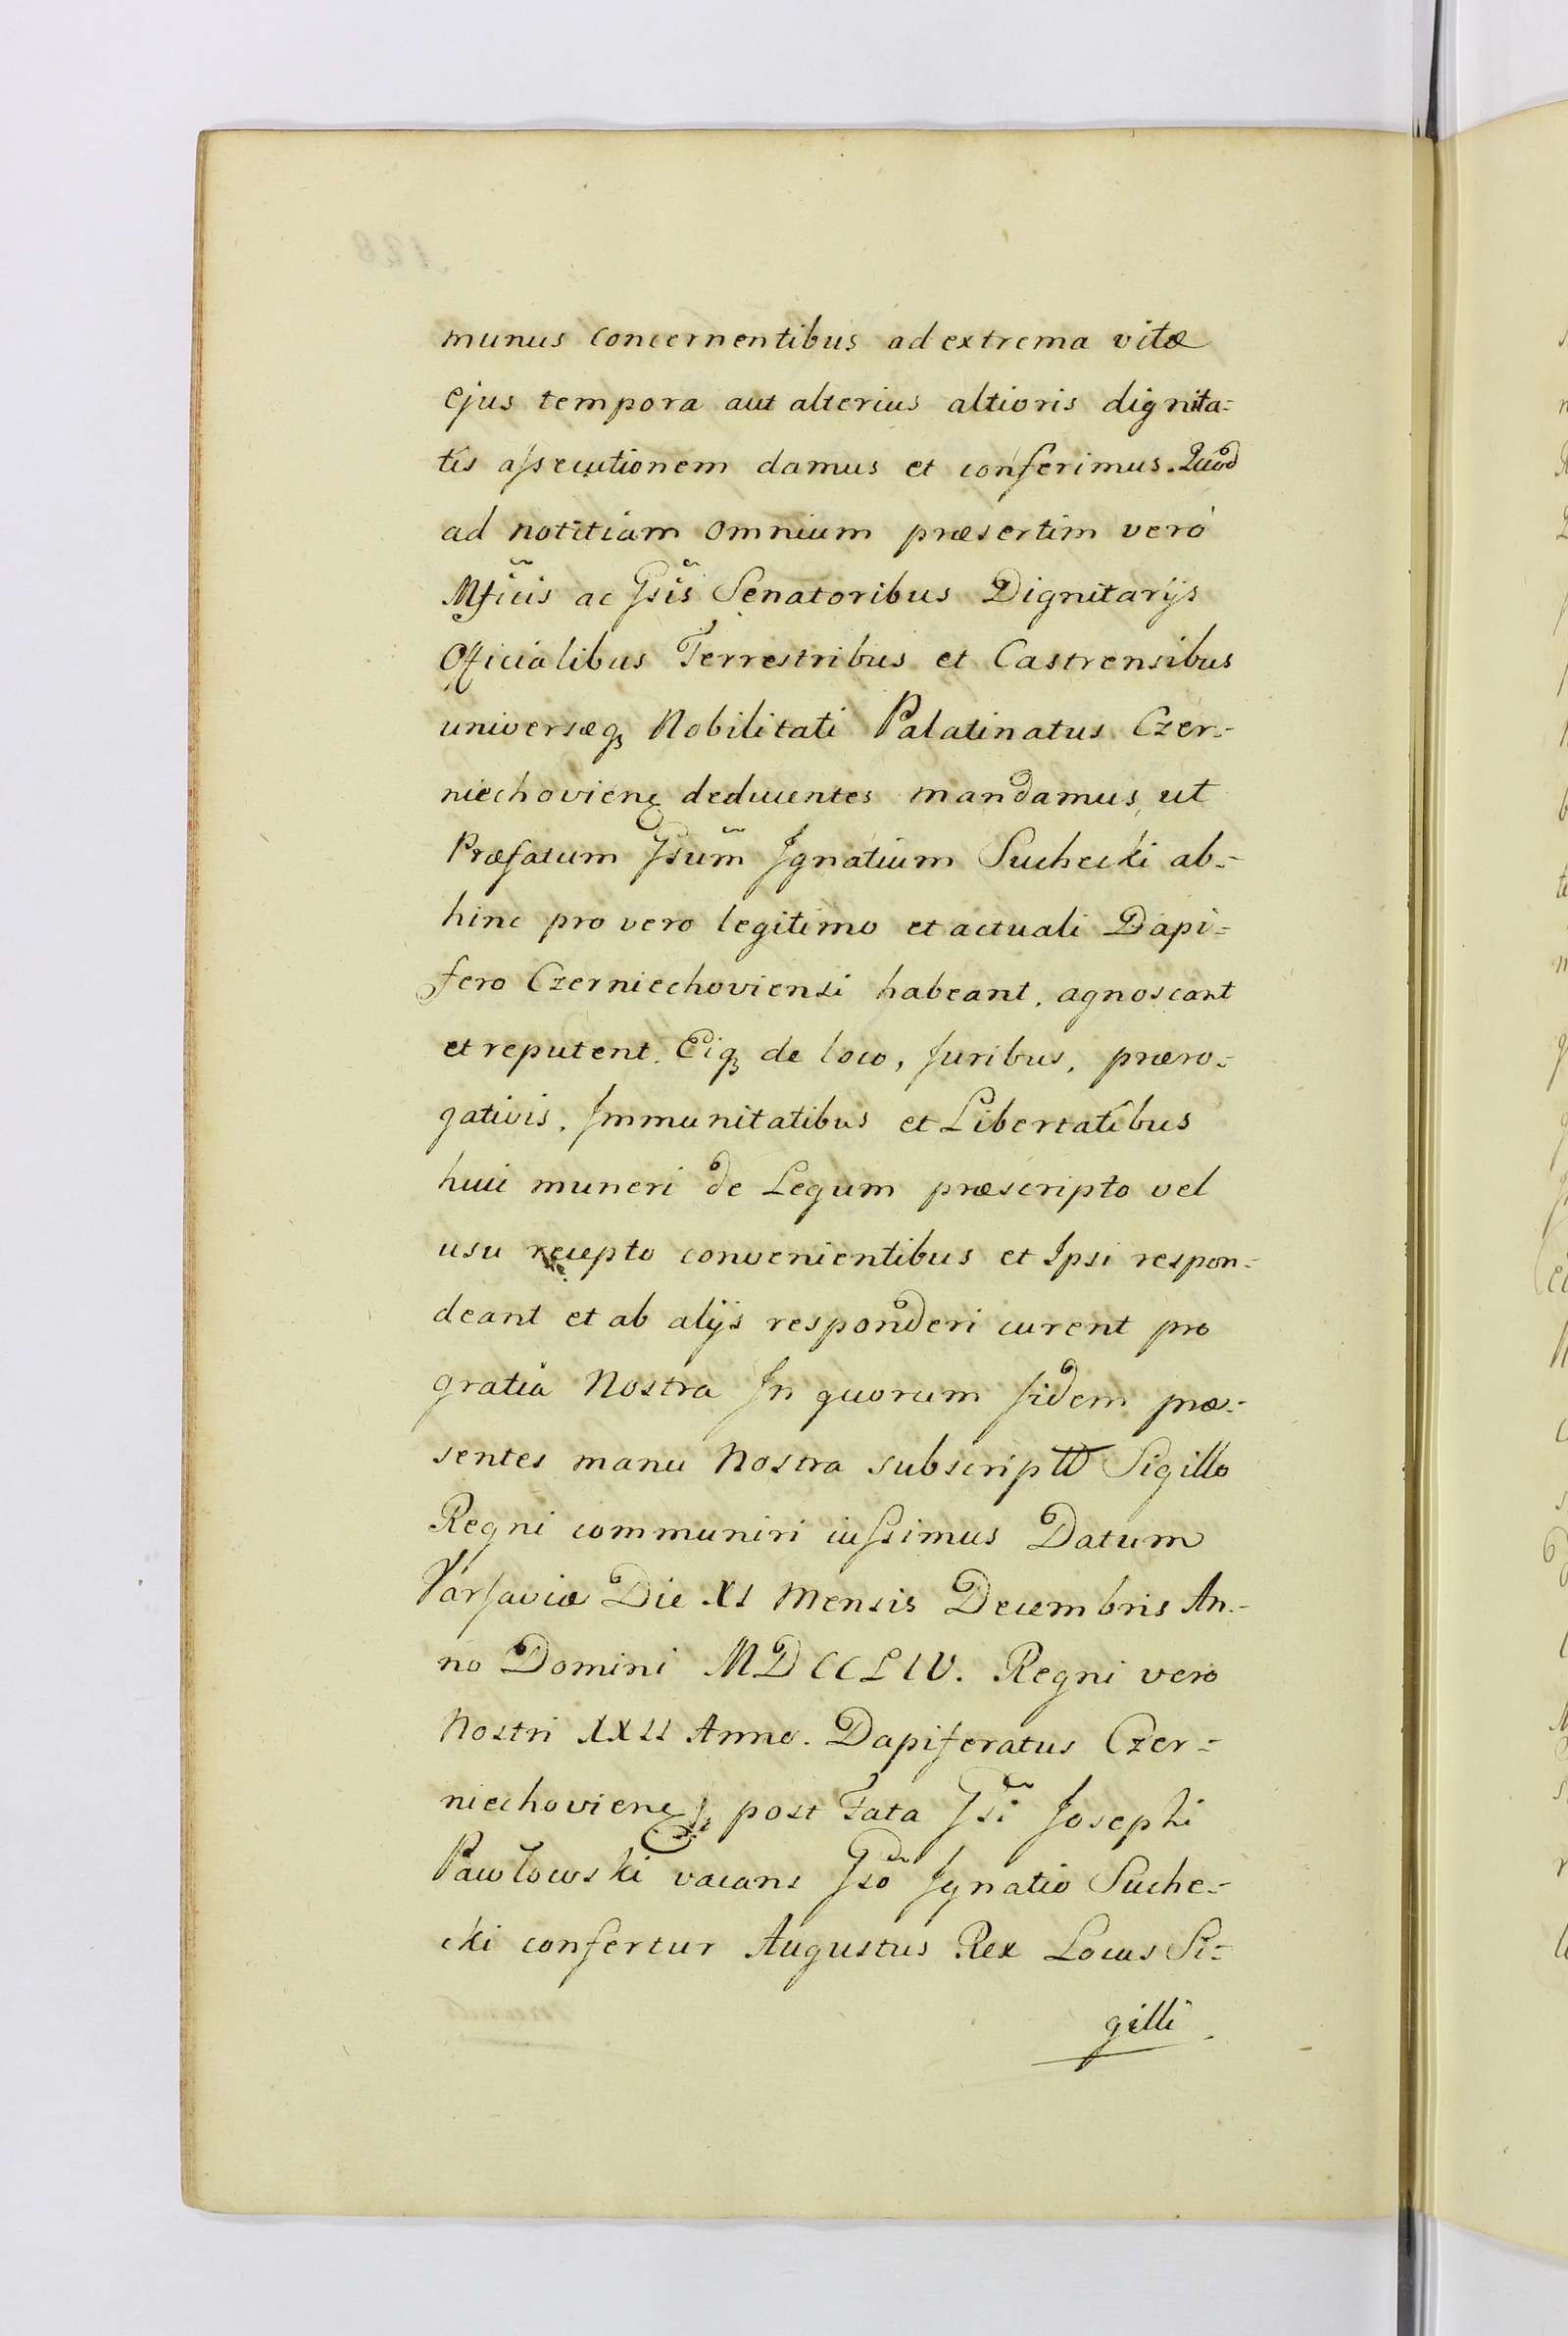 munus concernentibus ad extrema vitæ
ejus tempora aut alterius altioris dignita=
tis assecutionem damus et conferimus. Quod
ad notitiam omnium præsertim verò
Mficis ac Gsis Senatoribus Dignitarijs
Officialibus Terrestribus et Castrensibus
universæq3 Nobilitati Palatinatus Czer=
niechovien deducentes mandamus, ut
Præfatum Gsum Ignatium Suchecki ab=
hinc pro vero legitimo et actuali Dapi=
fero Czerniechoviensi habeant, agnoscant
et reputent. Eiq3 de loco, Juribus, præro=
gativis, Immunitatibus et Libertatibus
huic muneri de Legum præscripto vel
usu recepto convenientibus et Ipsi respon=
deant et ab alijs responderi curent pro
gratiâ Nostra In quorum fidem præ=
sentes manu Nostra subscriptt Sigillo
Regni communiri iussimus Datum
Varsaviæ Die XI Mensis Decembris An=
no Domini MDCCLIV. Regni vero
Nostri XXII Anno. Dapiferatus Czer=
niechovien post Fata Gsi Josephi
Pawłowski vacans Gso Ignatio Suche=
cki confertur Augustus Rex Locus Si=
gilli
128